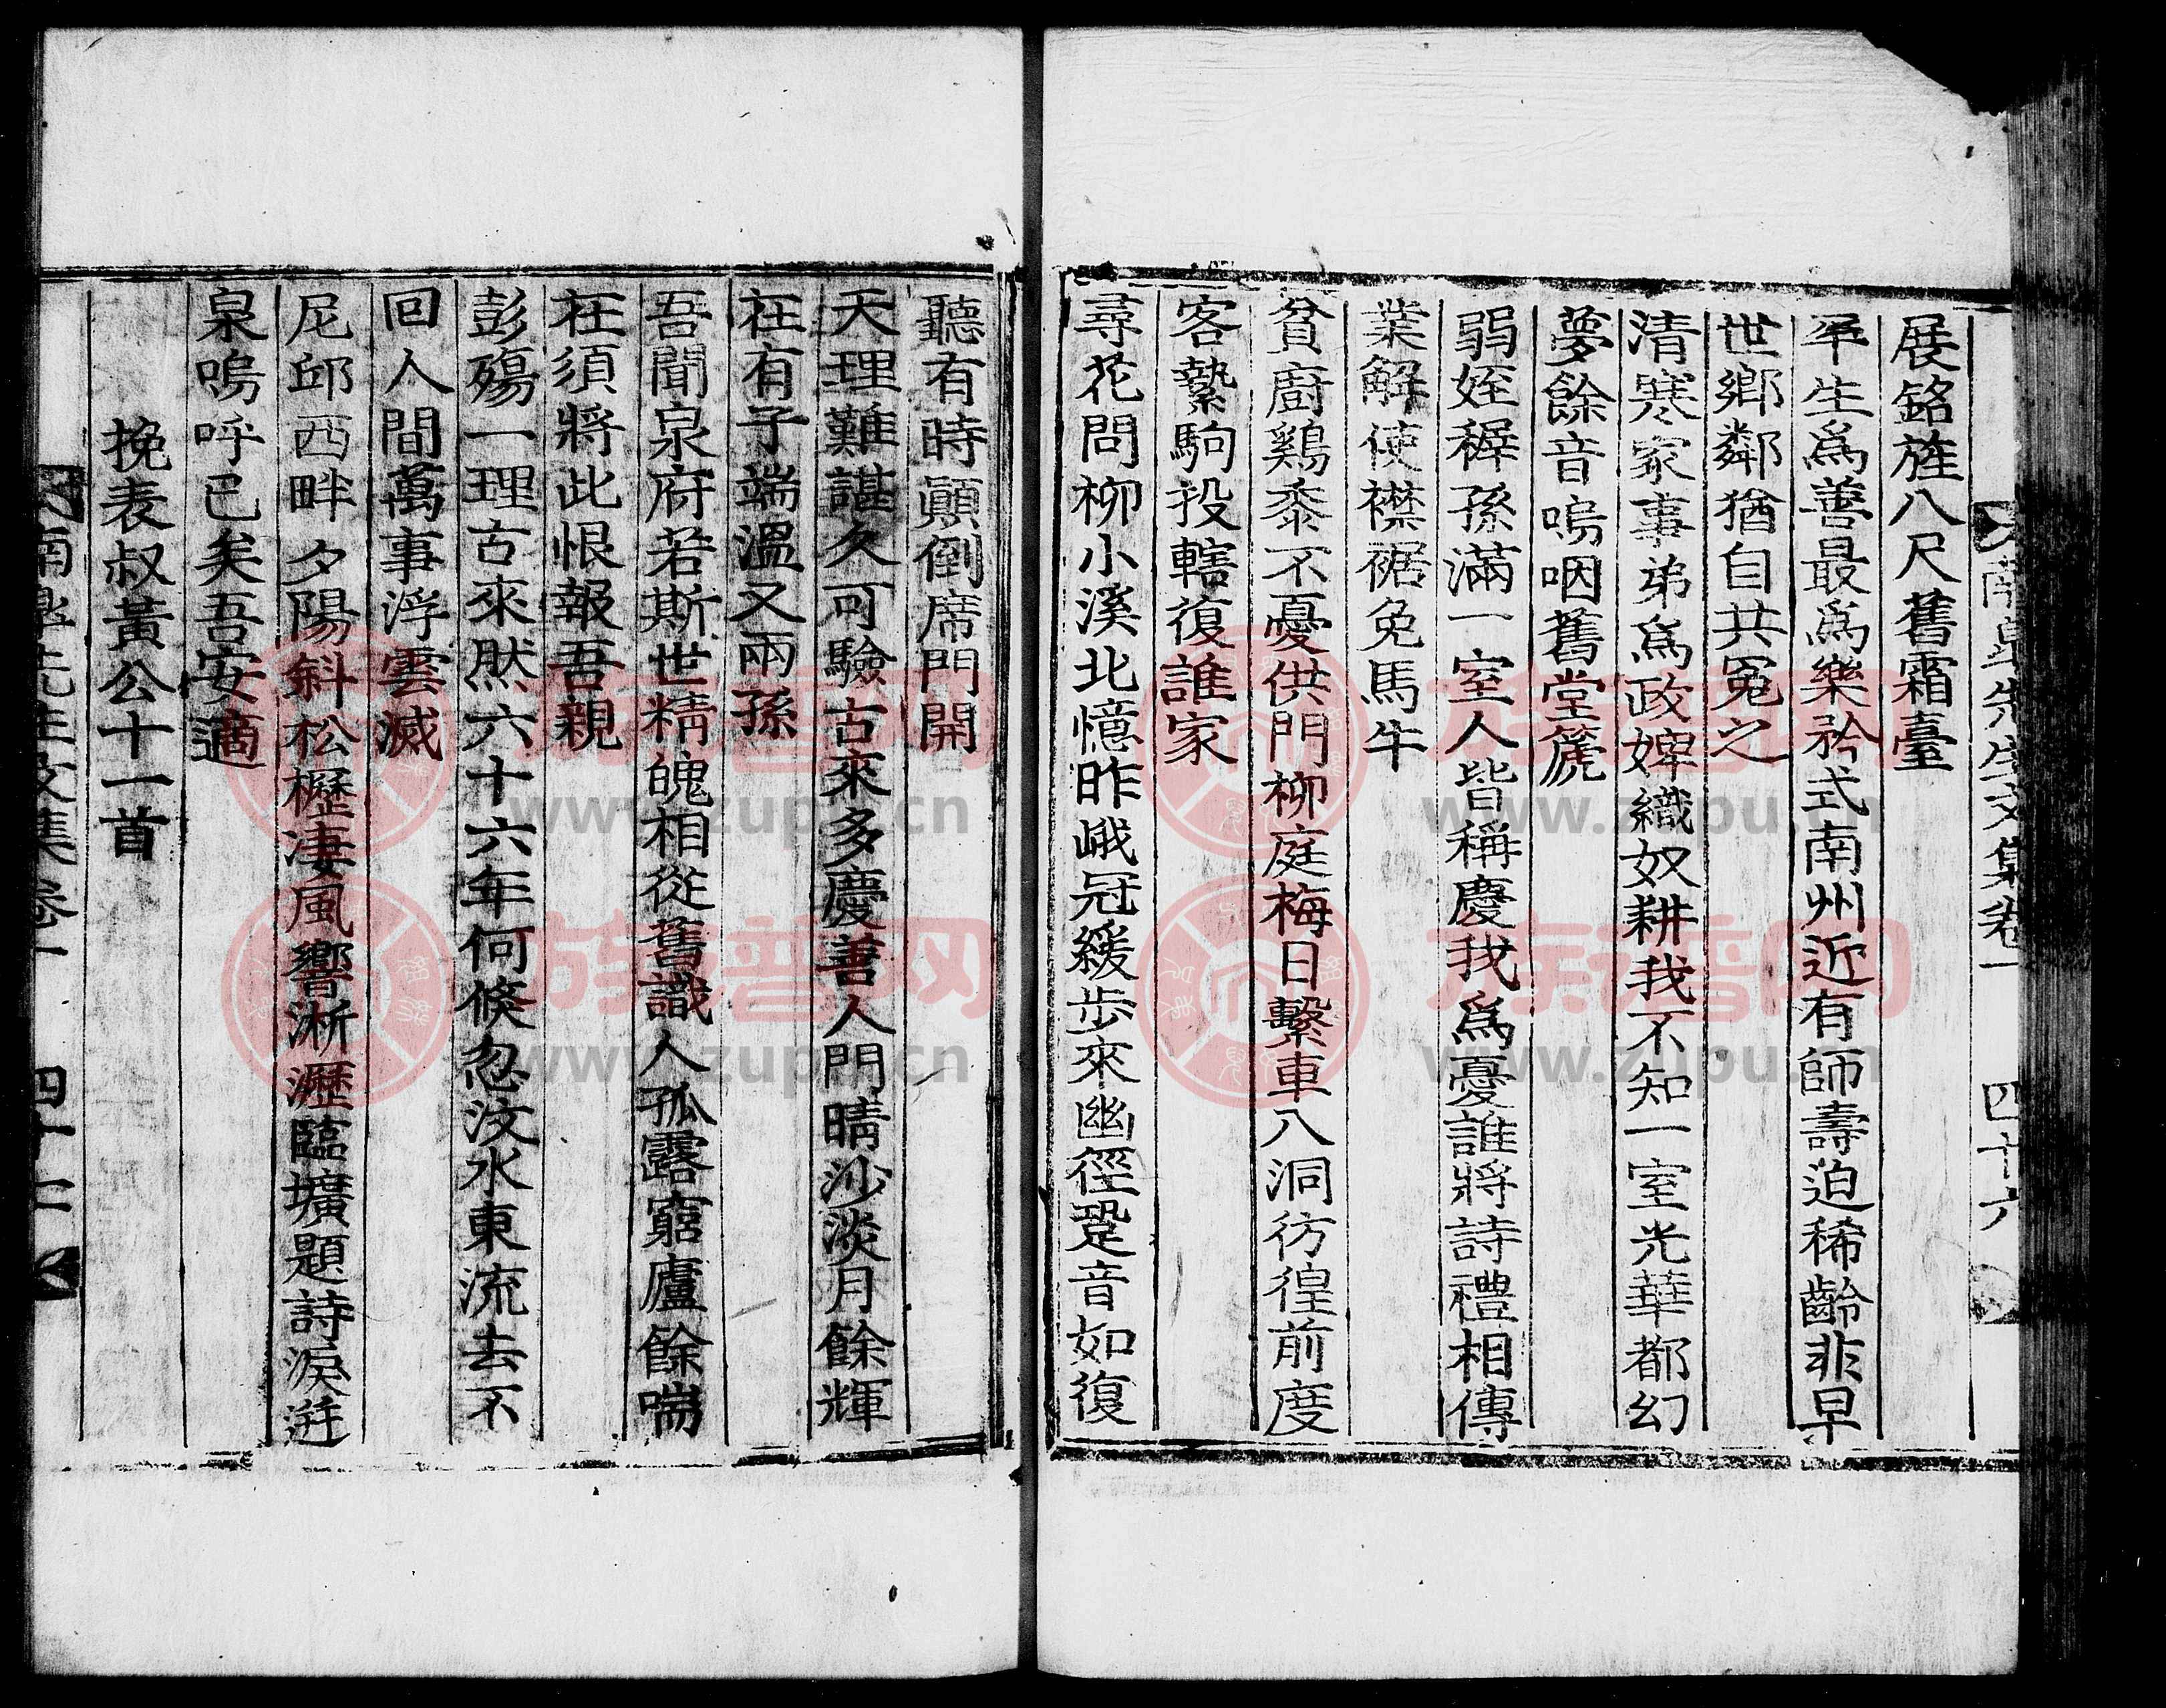 南皐先生文集卷一 四十六
展銘旌八尺舊霜臺
平生爲善最爲樂矜式南州近有師壽迫稀齡非早
世鄕鄰猶自共冤之
清寒家事弟爲政婢織奴耕我不知一室光華都幻
夢餘音嗚咽舊堂篪
弱姪穉孫滿一室人皆稱慶我爲憂誰將詩禮相傳
業解使襟裾免馬牛
貧廚鷄黍不憂供門柳庭梅日繫車八洞彷徨前度
客縶駒投轄復誰家
尋花問柳小溪北憶昨峨冠緩步來幽徑跫音如復
聽有時顚倒席門開
天理難諶久可驗古來多慶善人門晴沙淡月餘輝
在有子端溫又兩孫
吾聞泉府若斯世精魄相從舊識人孤露窮廬餘喘
在須將此恨報吾親
彭殤一理古來然六十六年何倏忽汶水東流去不
回人間萬事浮雲滅
尼邱西畔夕陽斜松櫪凄風響淅瀝臨壙題詩淚迸
泉嗚呼已矣吾安適
挽表叔黃公十一首
南皐先生文集卷一 四十二
族谱网
www.zupu.cn
族谱网
www.zupu.cn
族谱网
www.zupu.cn
族谱网
www.zupu.cn